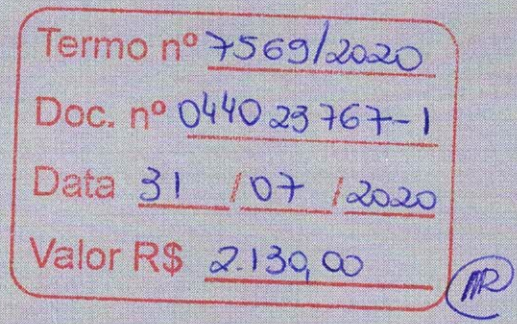 Termo nº 7569/2020
Doc. nº 044023767-1
Data 31 / 07 / 2020
Valor R$ 2.130,00